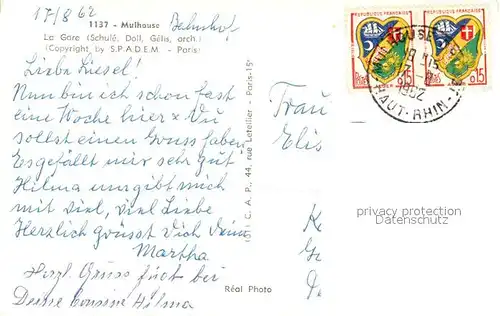 17/8 62
1137 - Mulhouse Bahnhof
La Gare (Schulé, Doll, Gélis, arch.)
(Copyright by S.P.A.D.E.M. - Paris)
Liebe Liesel!
Nun bin ich schon fast
eine Woche hier & Du
sollst einen Gruss haben
Es gefällt mir sehr gut
Hilma umgibt mich
mit viel, viel Liebe
Herzlich grüsst Dich Deine
Martha
Herzl. Gruss fügt bei
Deine Cousine Hilma
C. A. P., 44, rue Letellier - Paris-15e
Réal Photo
REPUBLIQUE FRANÇAISE
REPUBLIQUE FRANÇAISE
0,15
0,15
HAUT-RHIN
1962
Frau
Elis
privacy protection